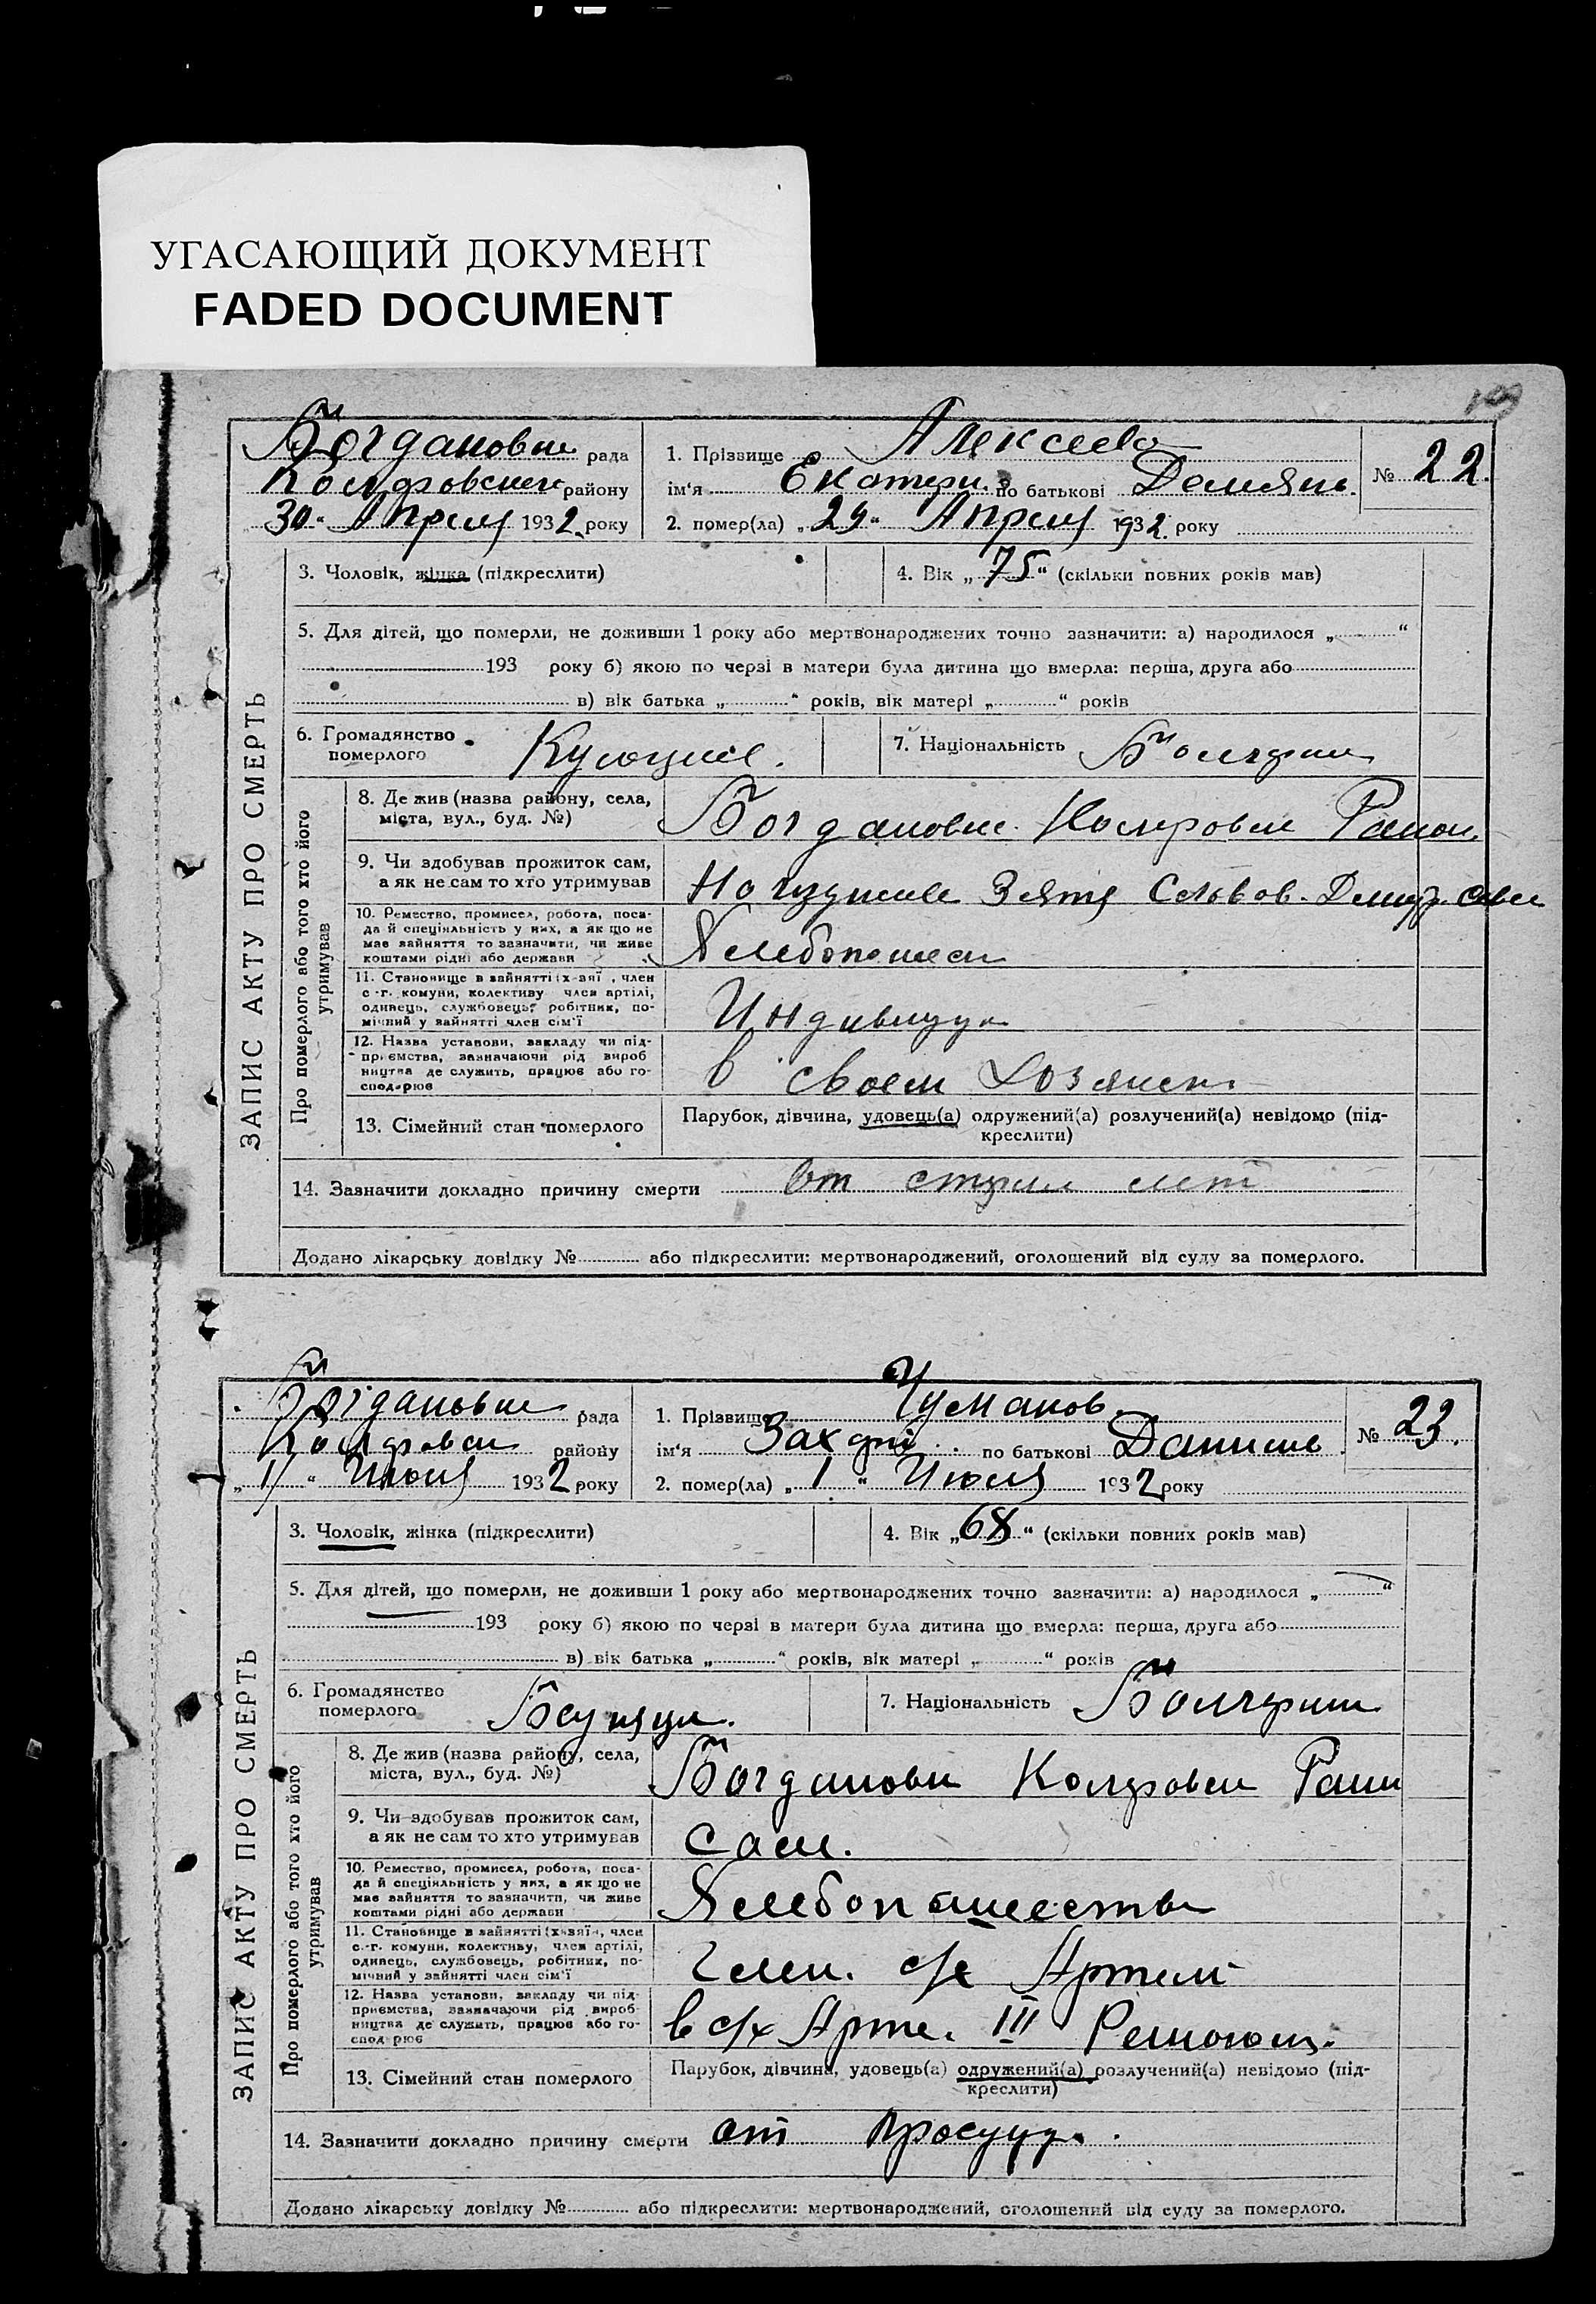 УГАСАЮЩИЙ ДОКУМЕНТ
FADED DOCUMENT
Богдановск рада
району
30 " Апреля 1932 року
1. Прізвище Алексеева
ім'я Екатери. по батькові Демьян.
2. помер(ла) „ 29 " Апреля 1932 року
№ 22.
ЗАПИС АКТУ ПРО СМЕРТЬ
3. Чоловік, жінка (підкреслити)
4. Вік „ 75 " (скільки повних років мав)
5. Для дітей, що померли, не доживши 1 року або мертвонароджених точно зазначити: а) народилося „ "
193 року б) якою по черзі в матери була дитина що вмерла: перша, друга або
в) вік батька „ " років, вік матері „ " років
6. Громадянство
померлого
7. Національність Болгарк
Про померлого або того хто його
утримував
8. Де жив (назва району, села,
міста, вул., буд. №)
Богдановк. Район
9. Чи здобував прожиток сам,
а як не сам то хто утримував
Зятя
10. Ремество, промисел, робота, поса-
да й спеціяльність у них, а як що не
має зайняття то зазначити, чи живе
коштами рідні або держави
Хлебопашест
11. Становище в зайнятті (х-зяї, член
с.-г. комуни, колективу член артілі,
одинець, службовець, робітник, по-
мічний у зайнятті член сім'ї
Индивидуал
12. Назва установи, закладу чи під-
приємства, зазначаючи рід вироб
ництва де служить, працює або го-
сподарює
в своем хозяйст.
13. Сімейний стан померлого
Парубок, дівчина, удовець(а) одружений(а) розлучений(а) невідомо (під-
креслити)
14. Зазначити докладно причину смерти от старых лет
Додано лікарську довідку № або підкреслити: мертвонароджений, оголошений від суду за померлого.
Богдановск рада
району
" Июля 1932 року
1. Прізвище Чуманов
ім'я Захарій по батькові Данилов
2. помер(ла) „ 1 " Июля 1932 року
№ 23.
ЗАПИС АКТУ ПРО СМЕРТЬ
3. Чоловік, жінка (підкреслити)
4. Вік „ 68 " (скільки повних років мав)
5. Для дітей, що померли, не доживши 1 року або мертвонароджених точно зазначити: а) народилося „ "
193 року б) якою по черзі в матери була дитина що вмерла: перша, друга або
в) вік батька „ " років, вік матері „ " років
6. Громадянство
померлого
7. Національність Болгарин
Про померлого або того хто його
утримував
8. Де жив (назва району, села,
міста, вул., буд. №)
Богдановк Район
9. Чи здобував прожиток сам,
а як не сам то хто утримував
сам.
10. Ремество, промисел, робота, поса-
да й спеціяльність у них, а як що не
має зайняття то зазначити, чи живе
коштами рідні або держави
Хлебопашество
11. Становище в зайнятті (х-зяїн, член
с.-г. комуни, колективу, член артілі,
одинець, службовець, робітник, по-
мічний у зайнятті член сім'ї
Член. с/х Артели
12. Назва установи, закладу чи під-
приємства, зазначаючи рід вироб-
ництва де служить, працює або го-
сподарює
в с/х Арте. III Решающ.
13. Сімейний стан померлого
Парубок, дівчина, удовець(а) одружений(а) розлучений(а) невідомо (під-
креслити)
14. Зазначити докладно причину смерти от простуды
Додано лікарську довідку № або підкреслити: мертвонароджений, оголошений від суду за померлого.